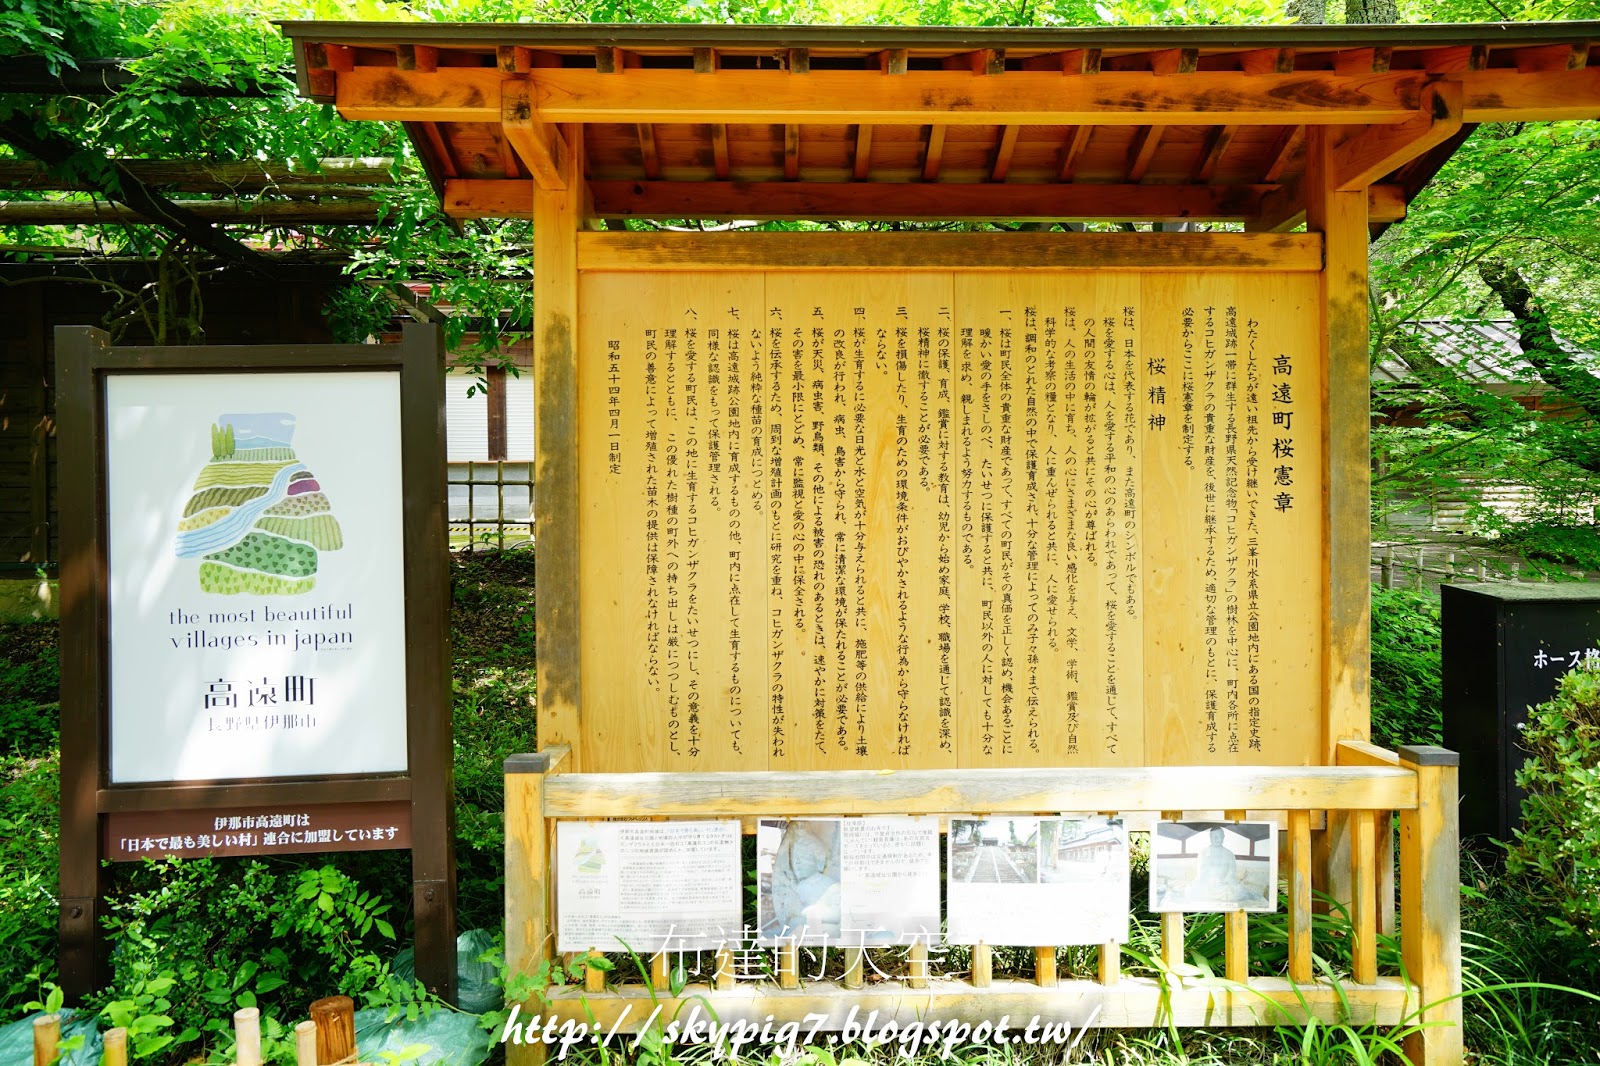 the most beautiful
villages in japan
高遠町
長野県伊那市
伊那市高遠町は
「日本で最も美しい村」連合に加盟しています
高遠町桜憲章
わたくしたちが遠い祖先から受け継いできた、三峯川水系県立公園地内にある国の指定史跡、
高遠城跡一帯に群生する長野県天然記念物「コヒガンザクラ」の樹林を中心に、町内各所に点在
するコヒガンザクラの貴重な財産を、後世に継承するため、適切な管理のもとに、保護育成する
必要からここに桜憲章を制定する。
桜精神
桜は、日本を代表する花であり、また高遠町のシンボルでもある。
桜を愛する心は、人を愛する平和の心のあらわれであって、桜を愛することを通じて、すべて
の人間の友情の輪が拡がると共にその心が尊ばれる。
桜は、人の生活の中に育ち、人の心にさまざまな良い感化を与え、文学、学術、鑑賞及び自然
科学的な考察の糧となり、人に重んぜられると共に、人に愛せられる。
桜は、調和のとれた自然の中で保護育成され、十分な管理によってのみ子々孫々まで伝えられる。
一、桜は町民全体の貴重な財産であって、すべての町民がその真価を正しく認め、機会あるごとに
暖かい愛の手をさしのべ、たいせつに保護すると共に、町民以外の人に対しても十分な
理解を求め、親しまれるよう努力するものである。
二、桜の保護、育成、鑑賞に対する教育は、幼児から始め家庭、学校、職場を通じて認識を深め、
桜精神に徹することが必要である。
三、桜を損傷したり、生育のための環境条件がおびやかされるような行為から守らなければ
ならない。
四、桜が生育するに必要な日光と水と空気が十分与えられると共に、施肥等の供給により土壌
の改良が行われ、病虫、鳥害から守られ、常に清潔な環境が保たれることが必要である。
五、桜が天災、病虫害、野鳥類、その他による被害の恐れのあるときは、速やかに対策をたて、
その害を最小限にとどめ、常に監視と愛の心の中に保全される。
六、桜を伝承するため、周到な増殖計画のもとに研究を重ね、コヒガンザクラの特性が失われ
ないよう純粋な種苗の育成につとめる。
七、桜は高遠城跡公園地内に育成するものの他、町内に点在して生育するものについても、
同様な認識をもって保護管理される。
八、桜を愛する町民は、この地に生育するコヒガンザクラをたいせつにし、その意義を十分
理解するとともに、この優れた樹種の町外への持ち出しは厳につつしむものとし、
町民の善意によって増殖された苗木の提供は保障されなければならない。
昭和五十四年四月一日制定
ホース格
高遠町
布達的天空
http://skypig7.blogspot.tw/